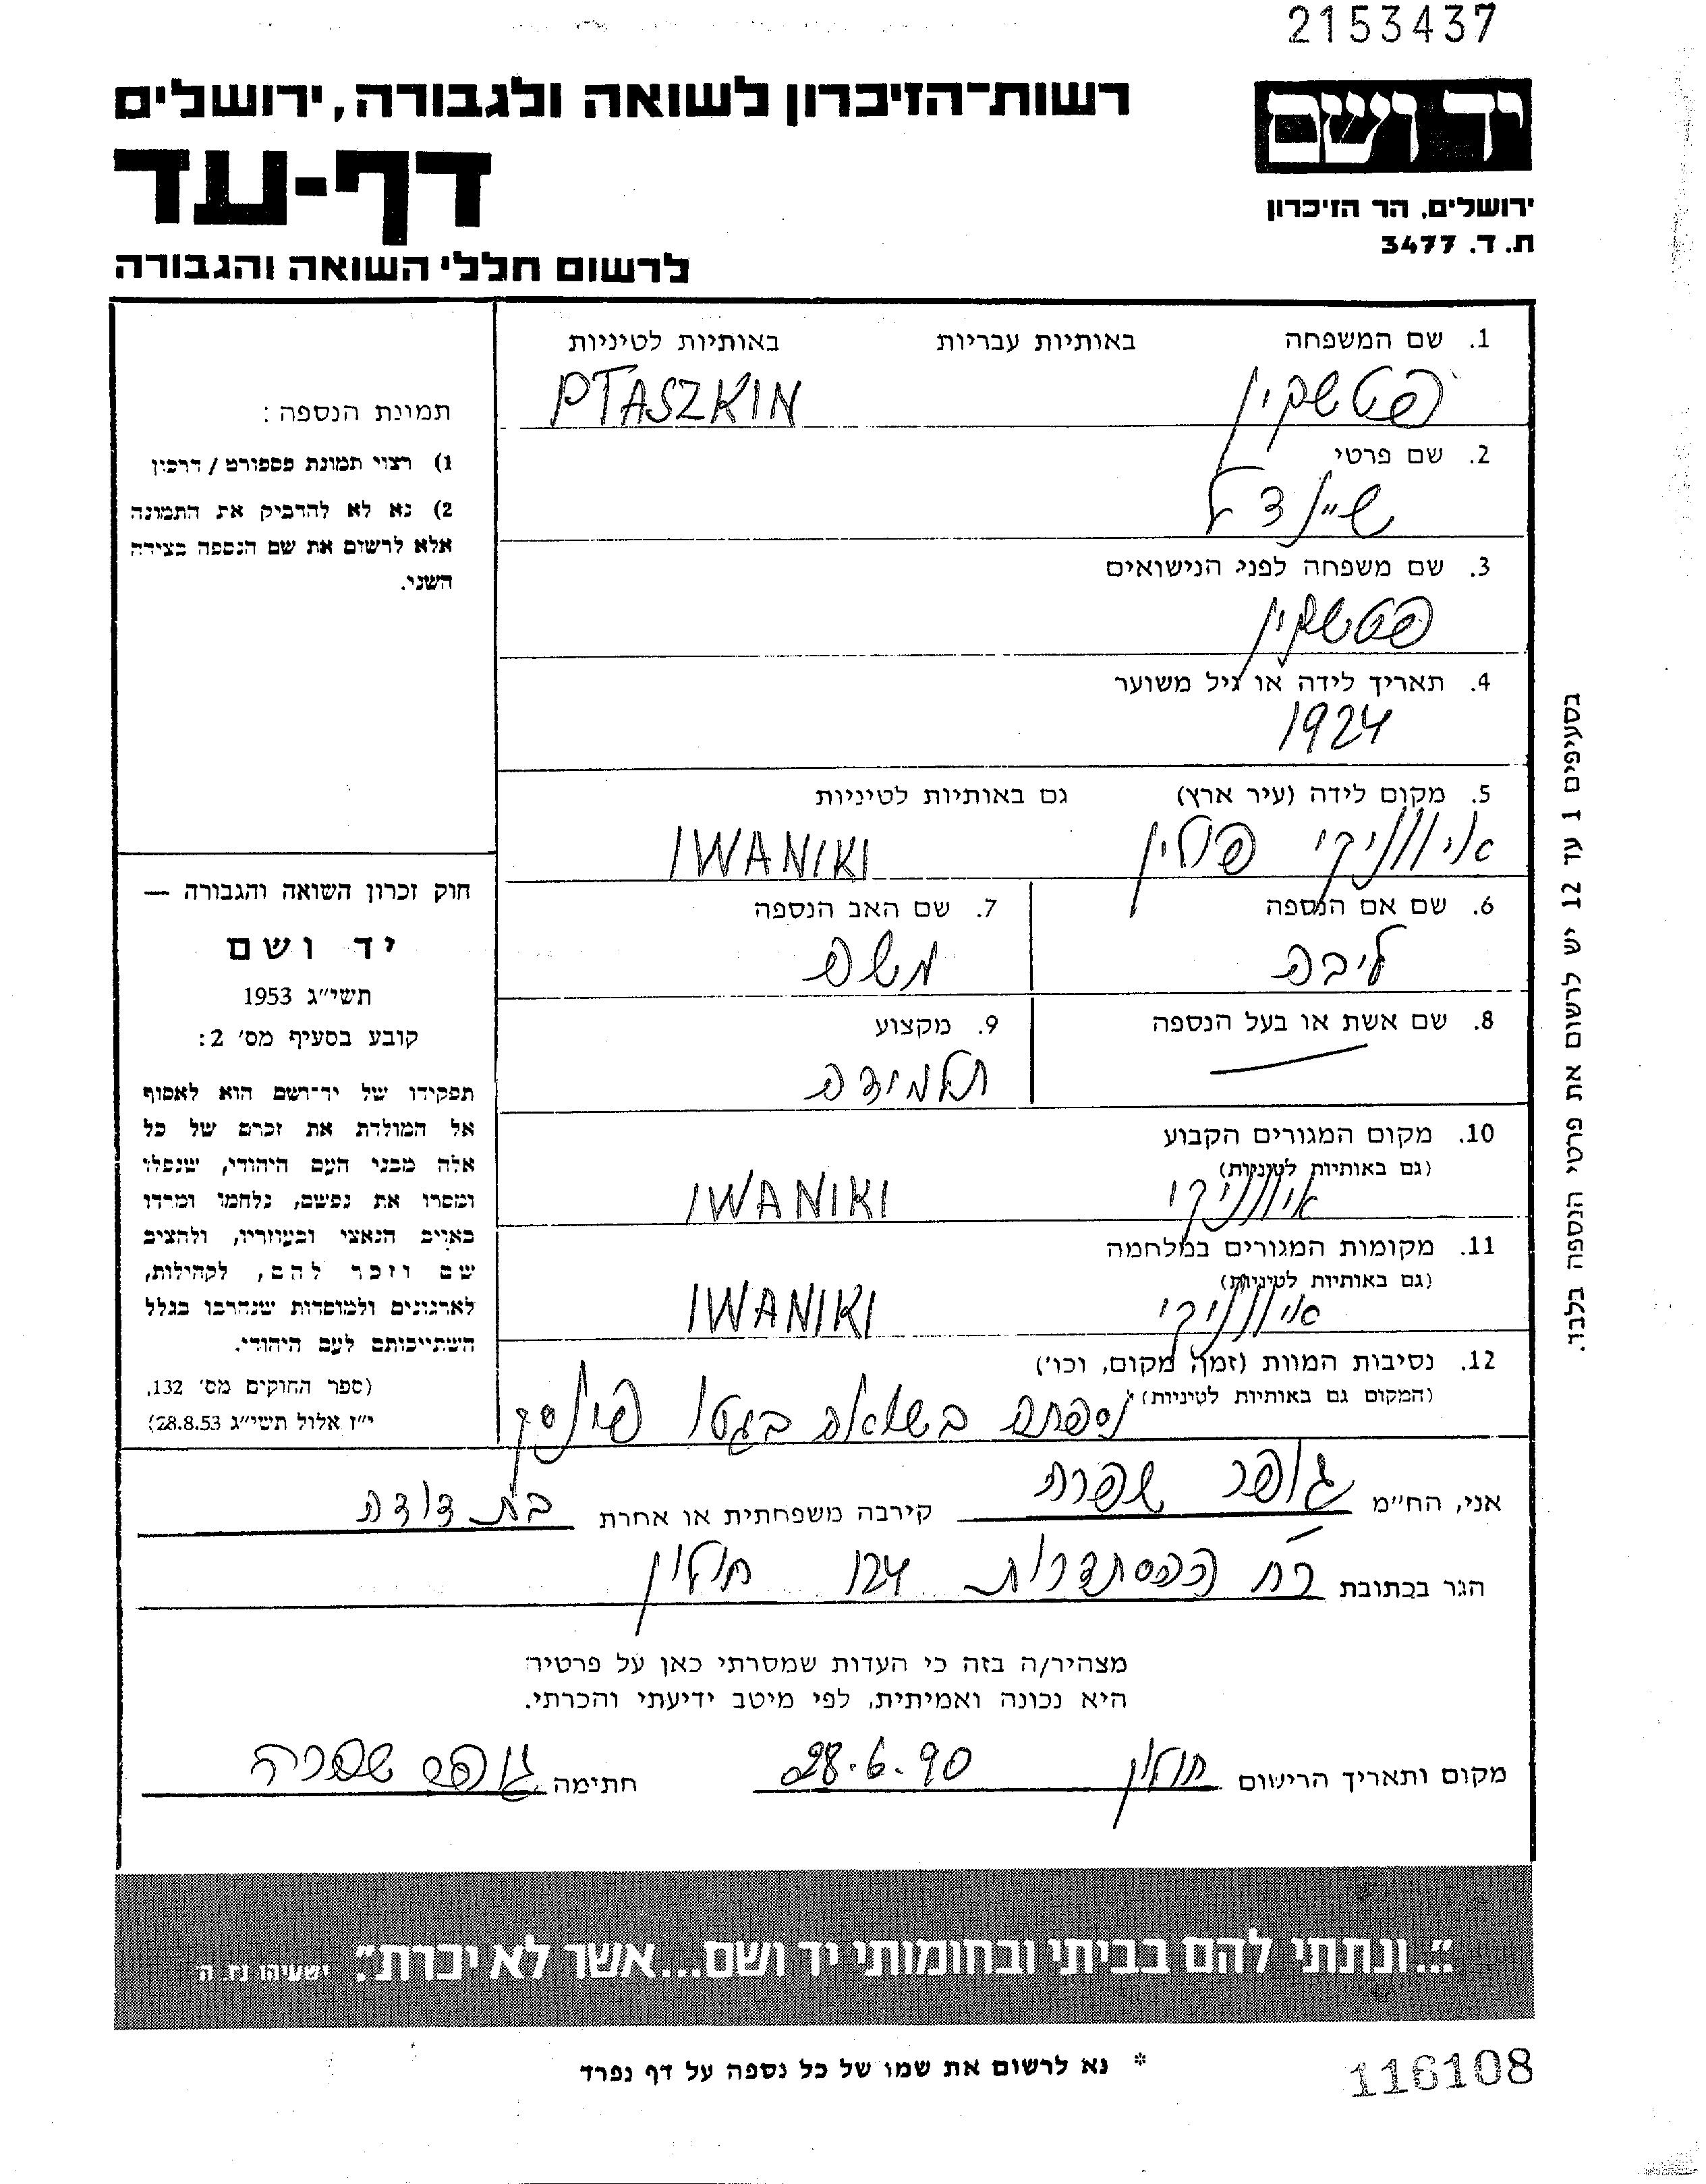 2153437
רשות־הזיכרון לשואה ולגבורה, ירושלים
יד ושם
דף-עד
ירושלים, הר הזיכרון
ת. ד. 3477
לרשום חללי השואה והגבורה
1. שם המשפחה באותיות עבריות באותיות לטיניות
פטשקין PTASZKIN
2. שם פרטי
שיינדל
3. שם משפחה לפני הנישואים
פטשקין
4. תאריך לידה או גיל משוער
1924
5. מקום לידה (עיר ארץ) גם באותיות לטיניות
איווניקי פולין IWANIKI
6. שם אם הנספה 7. שם האב הנספה
ליבה משה
8. שם אשת או בעל הנספה 9. מקצוע
— תלמידה
10. מקום המגורים הקבוע
(גם באותיות לטיניות)
איווניקי IWANIKI
11. מקומות המגורים במלחמה
(גם באותיות לטיניות)
איווניקי IWANIKI
12. נסיבות המוות (זמן, מקום, וכו')
(המקום גם באותיות לטיניות)
נספתה בשואה בגטו פינסק
תמונת הנספה:
1) רצוי תמונת פספורט / דרכון
2) נא לא להדביק את התמונה
אלא לרשום את שם הנספה בצידה
השני.
חוק זכרון השואה והגבורה —
יד ושם
תשי״ג 1953
קובע בסעיף מס' 2:
תפקידו של יד־ושם הוא לאסוף
אל המולדת את זכרם של כל
אלה מבני העם היהודי, שנפלו
ומסרו את נפשם, נלחמו ומרדו
באויב הנאצי ובעוזריו, ולהציב
שם וזכר להם, לקהילות,
לארגונים ולמוסדות שנחרבו בגלל
השתייכותם לעם היהודי.
(ספר החוקים מס' 132,
י״ז אלול תשי״ג 28.8.53)
בסעיפים 1 עד 12 יש לרשום את פרטי הנספה בלבד.
אני, הח״מ גופר שפרה קירבה משפחתית או אחרת בת דודה
הגר בכתובת רח ההסתדרות 124 חולון
מצהיר/ה בזה כי העדות שמסרתי כאן על פרטיה
היא נכונה ואמיתית, לפי מיטב ידיעתי והכרתי.
מקום ותאריך הרישום חולון 28.6.90 חתימה גופר שפרה
"...ונתתי להם בביתי ובחומותי יד ושם...אשר לא יכרת". ישעיהו נו, ה
* נא לרשום את שמו של כל נספה על דף נפרד
116108